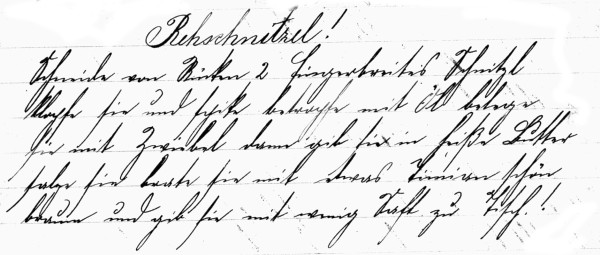 Rehschnitzel!
Schneide von Rücken 2 fingerbreites Schnitzl
klopfe sie und spike betropfe mit Öl belege
sie mit Zwiebel dann gib sie in heiße Butter
salze sie brate sie mit etwas Timian schön
braun und gib sie mit wenig Saft zu Tisch.!